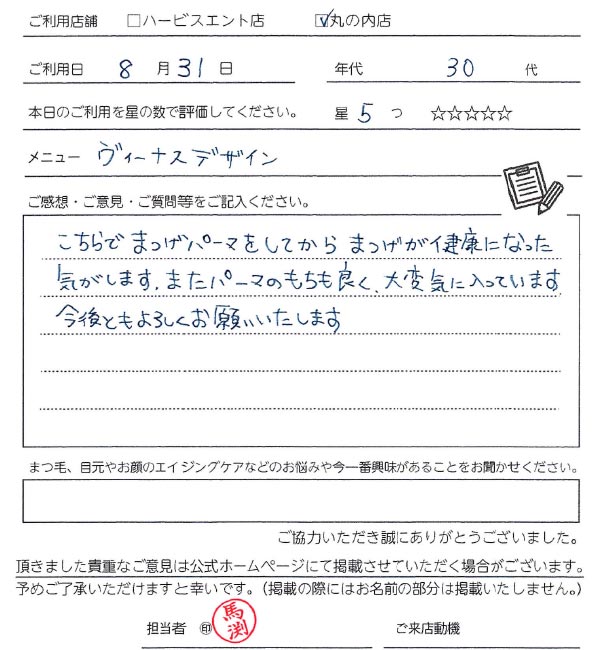 ご利用店舗 □ハービスエント店 ☑丸の内店
ご利用日 8月31日 年代 30代
本日のご利用を星の数で評価してください。 星5つ ☆☆☆☆☆
メニュー ヴィーナスデザイン
ご感想・ご意見・ご質問等をご記入ください。
こちらでまつげパーマをしてからまつげが健康になった
気がします。またパーマのもちも良く、大変気に入っています
今後ともよろしくお願いいたします
まつ毛、目元やお顔のエイジングケアなどのお悩みや今一番興味があることをお聞かせください。
ご協力いただき誠にありがとうございました。
頂きました貴重なご意見は公式ホームページにて掲載させていただく場合がございます。
予めご了承いただけますと幸いです。(掲載の際にはお名前の部分は掲載いたしません。)
担当者 ㊞ 馬渕 ご来店動機